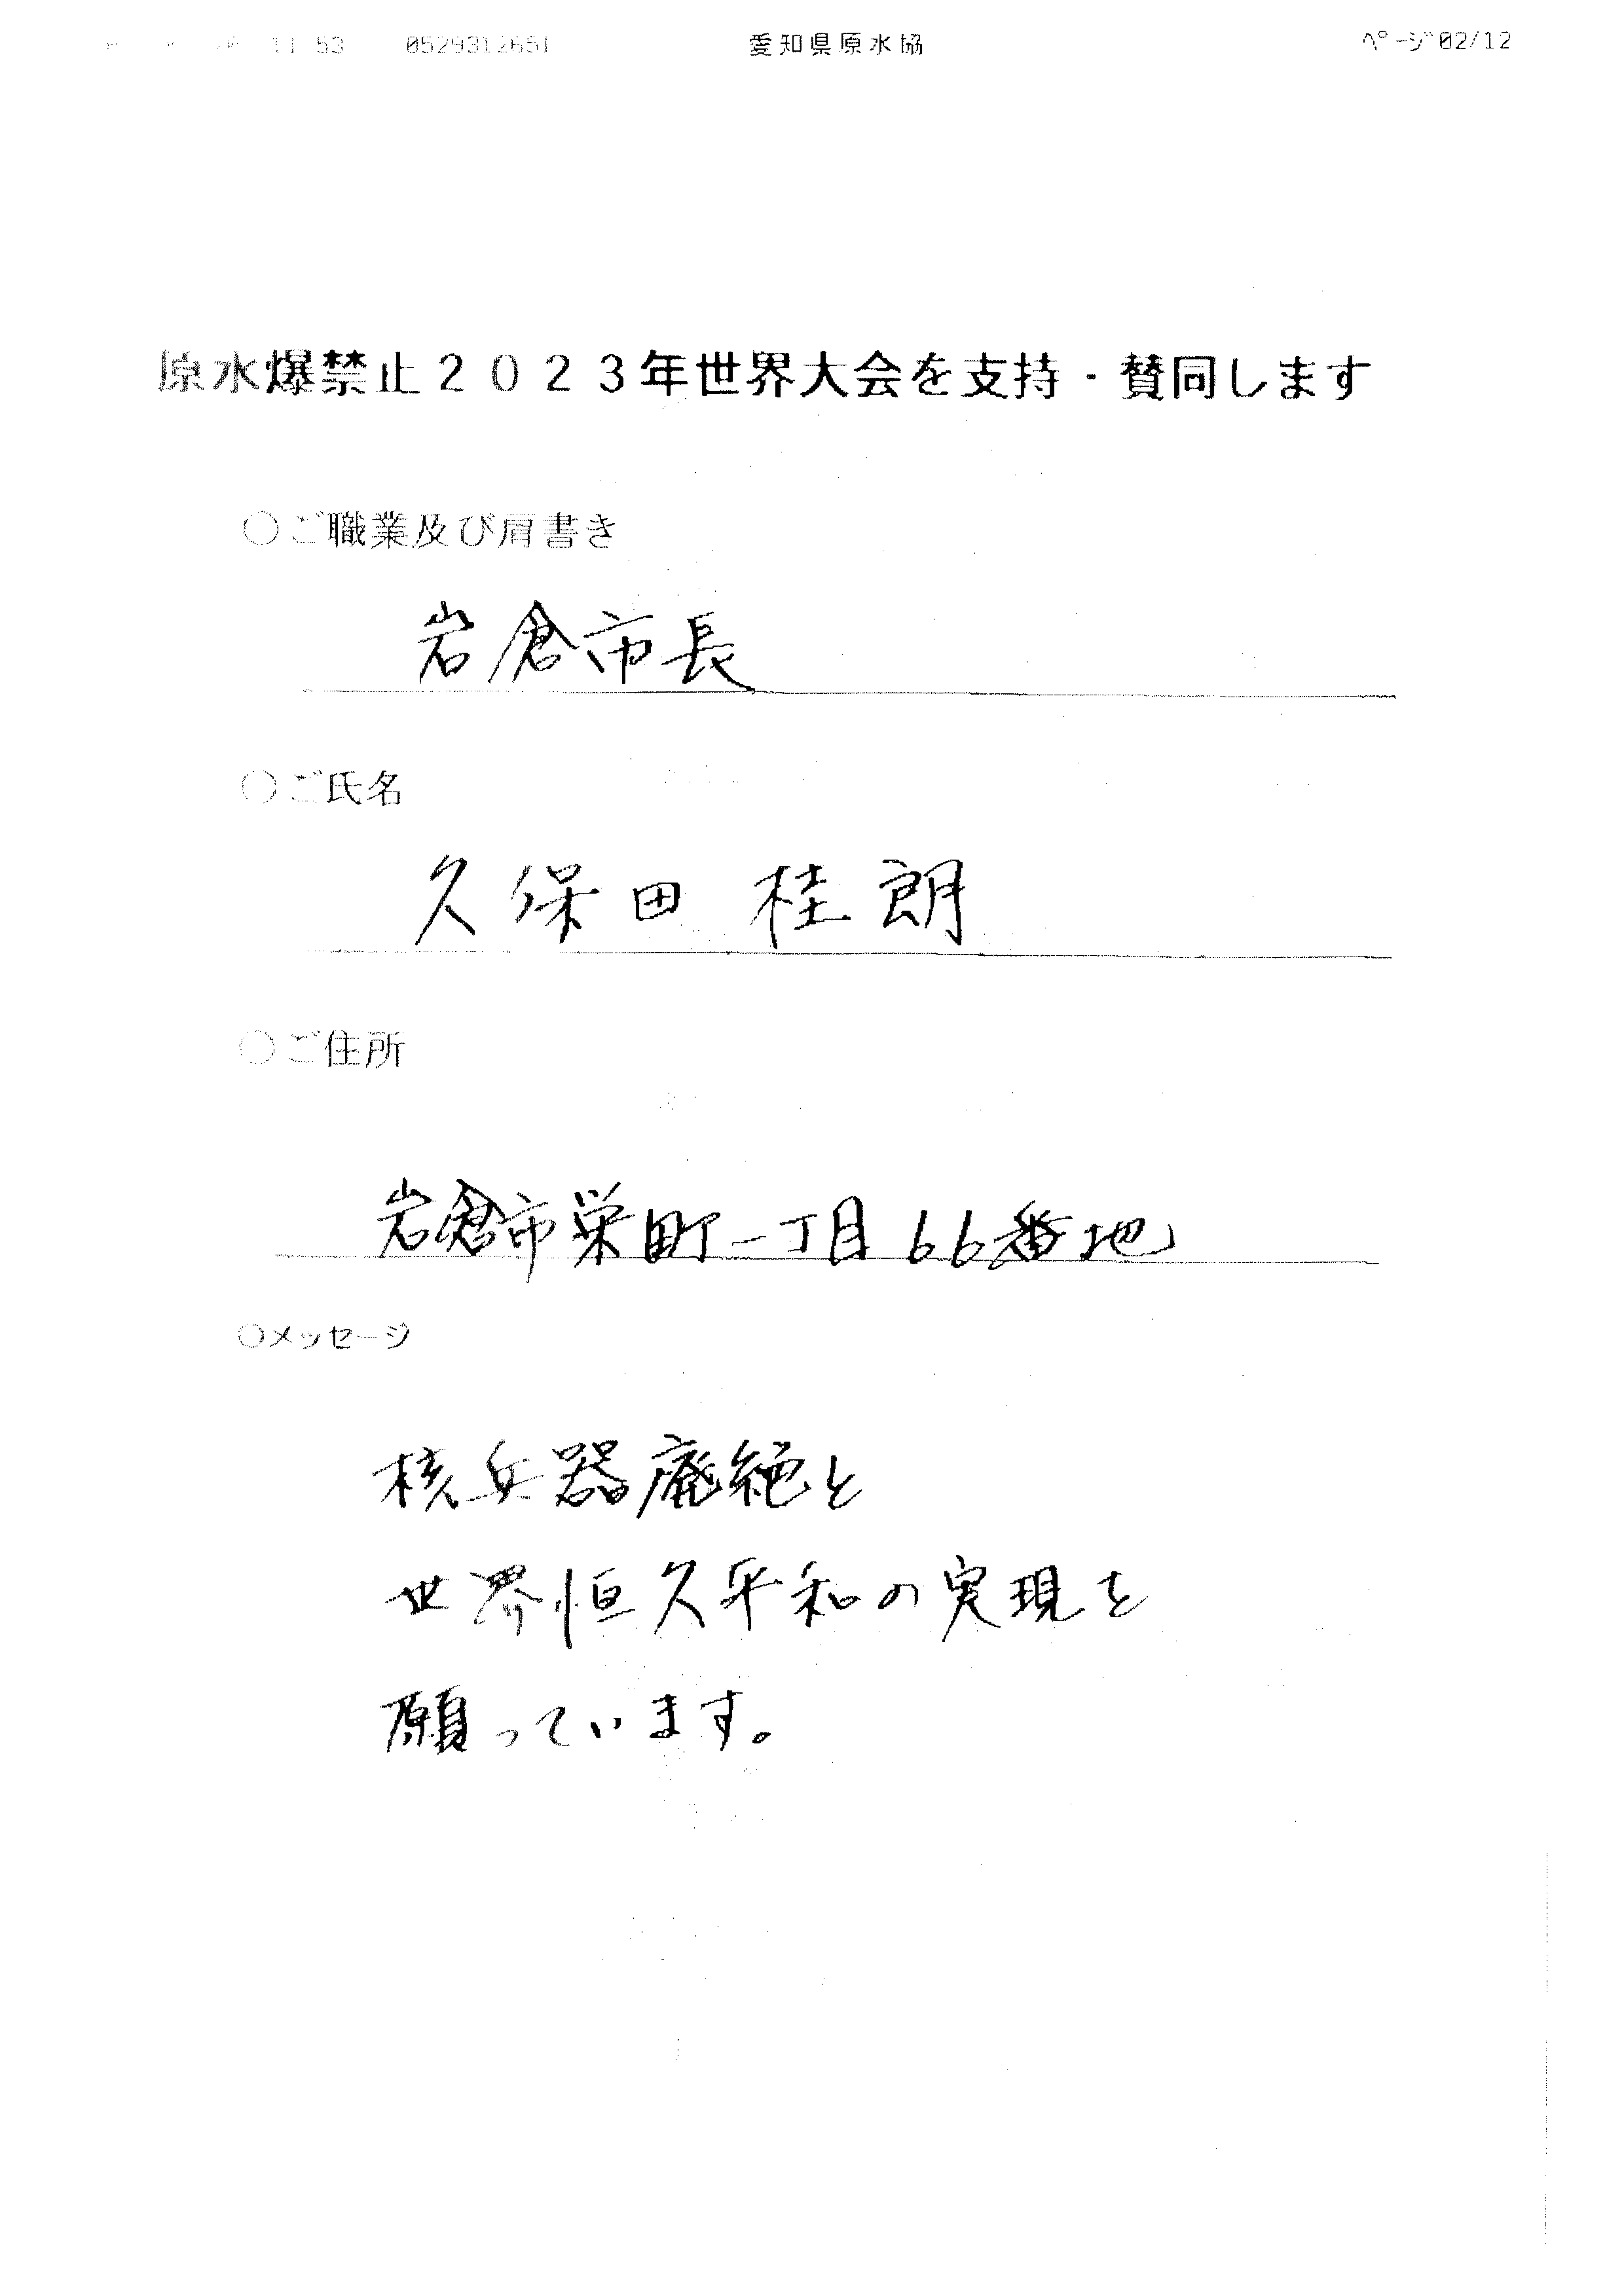 11 53 0529312651 愛知県原水協 ページ02/12
原水爆禁止2023年世界大会を支持・賛同します
○ご職業及び肩書き
岩倉市長
○ご氏名
久保田 桂朗
○ご住所
岩倉市栄町一丁目66番地
○メッセージ
核兵器廃絶と
世界恒久平和の実現を
願っています。